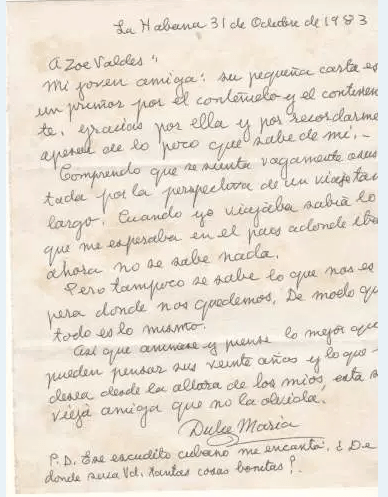 La Habana 31 de Octubre de 1983
A Zoe Valdes:
Mi joven amiga: su pequeña carta es
un primor por el conteñido y el continen
te. Gracias por ella y por recordarme
apesar de lo poco que sabe de mí.-
Comprendo que se sienta vagamente asus
tada por la perspectiva de un viaje tan
largo. Cuando yo viajaba sabía lo
que me esperaba en el pais adonde iba
ahora no se sabe nada.
Pero tampoco se sabe lo que nos es
pera donde nos quedemos. De modo que
todo es lo mismo.
Así que anímese y piense lo mejor que
pueden pensar sus veinte años y lo que
desea desde la altura de los mios, esta s
vieja amiga que no la olvida.
Dulce María
P.D. Ese escudito cubano me encantá. ¿De
donde saca Vd. tantas cosas bonitas?.